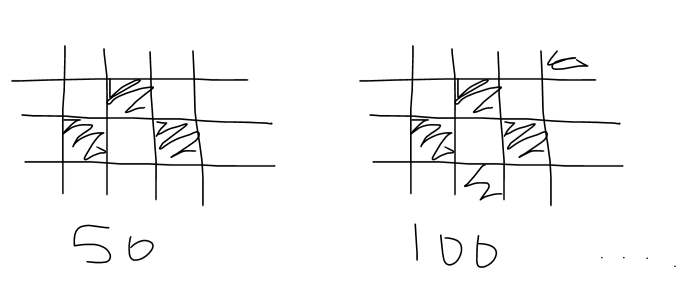 50 100 ....